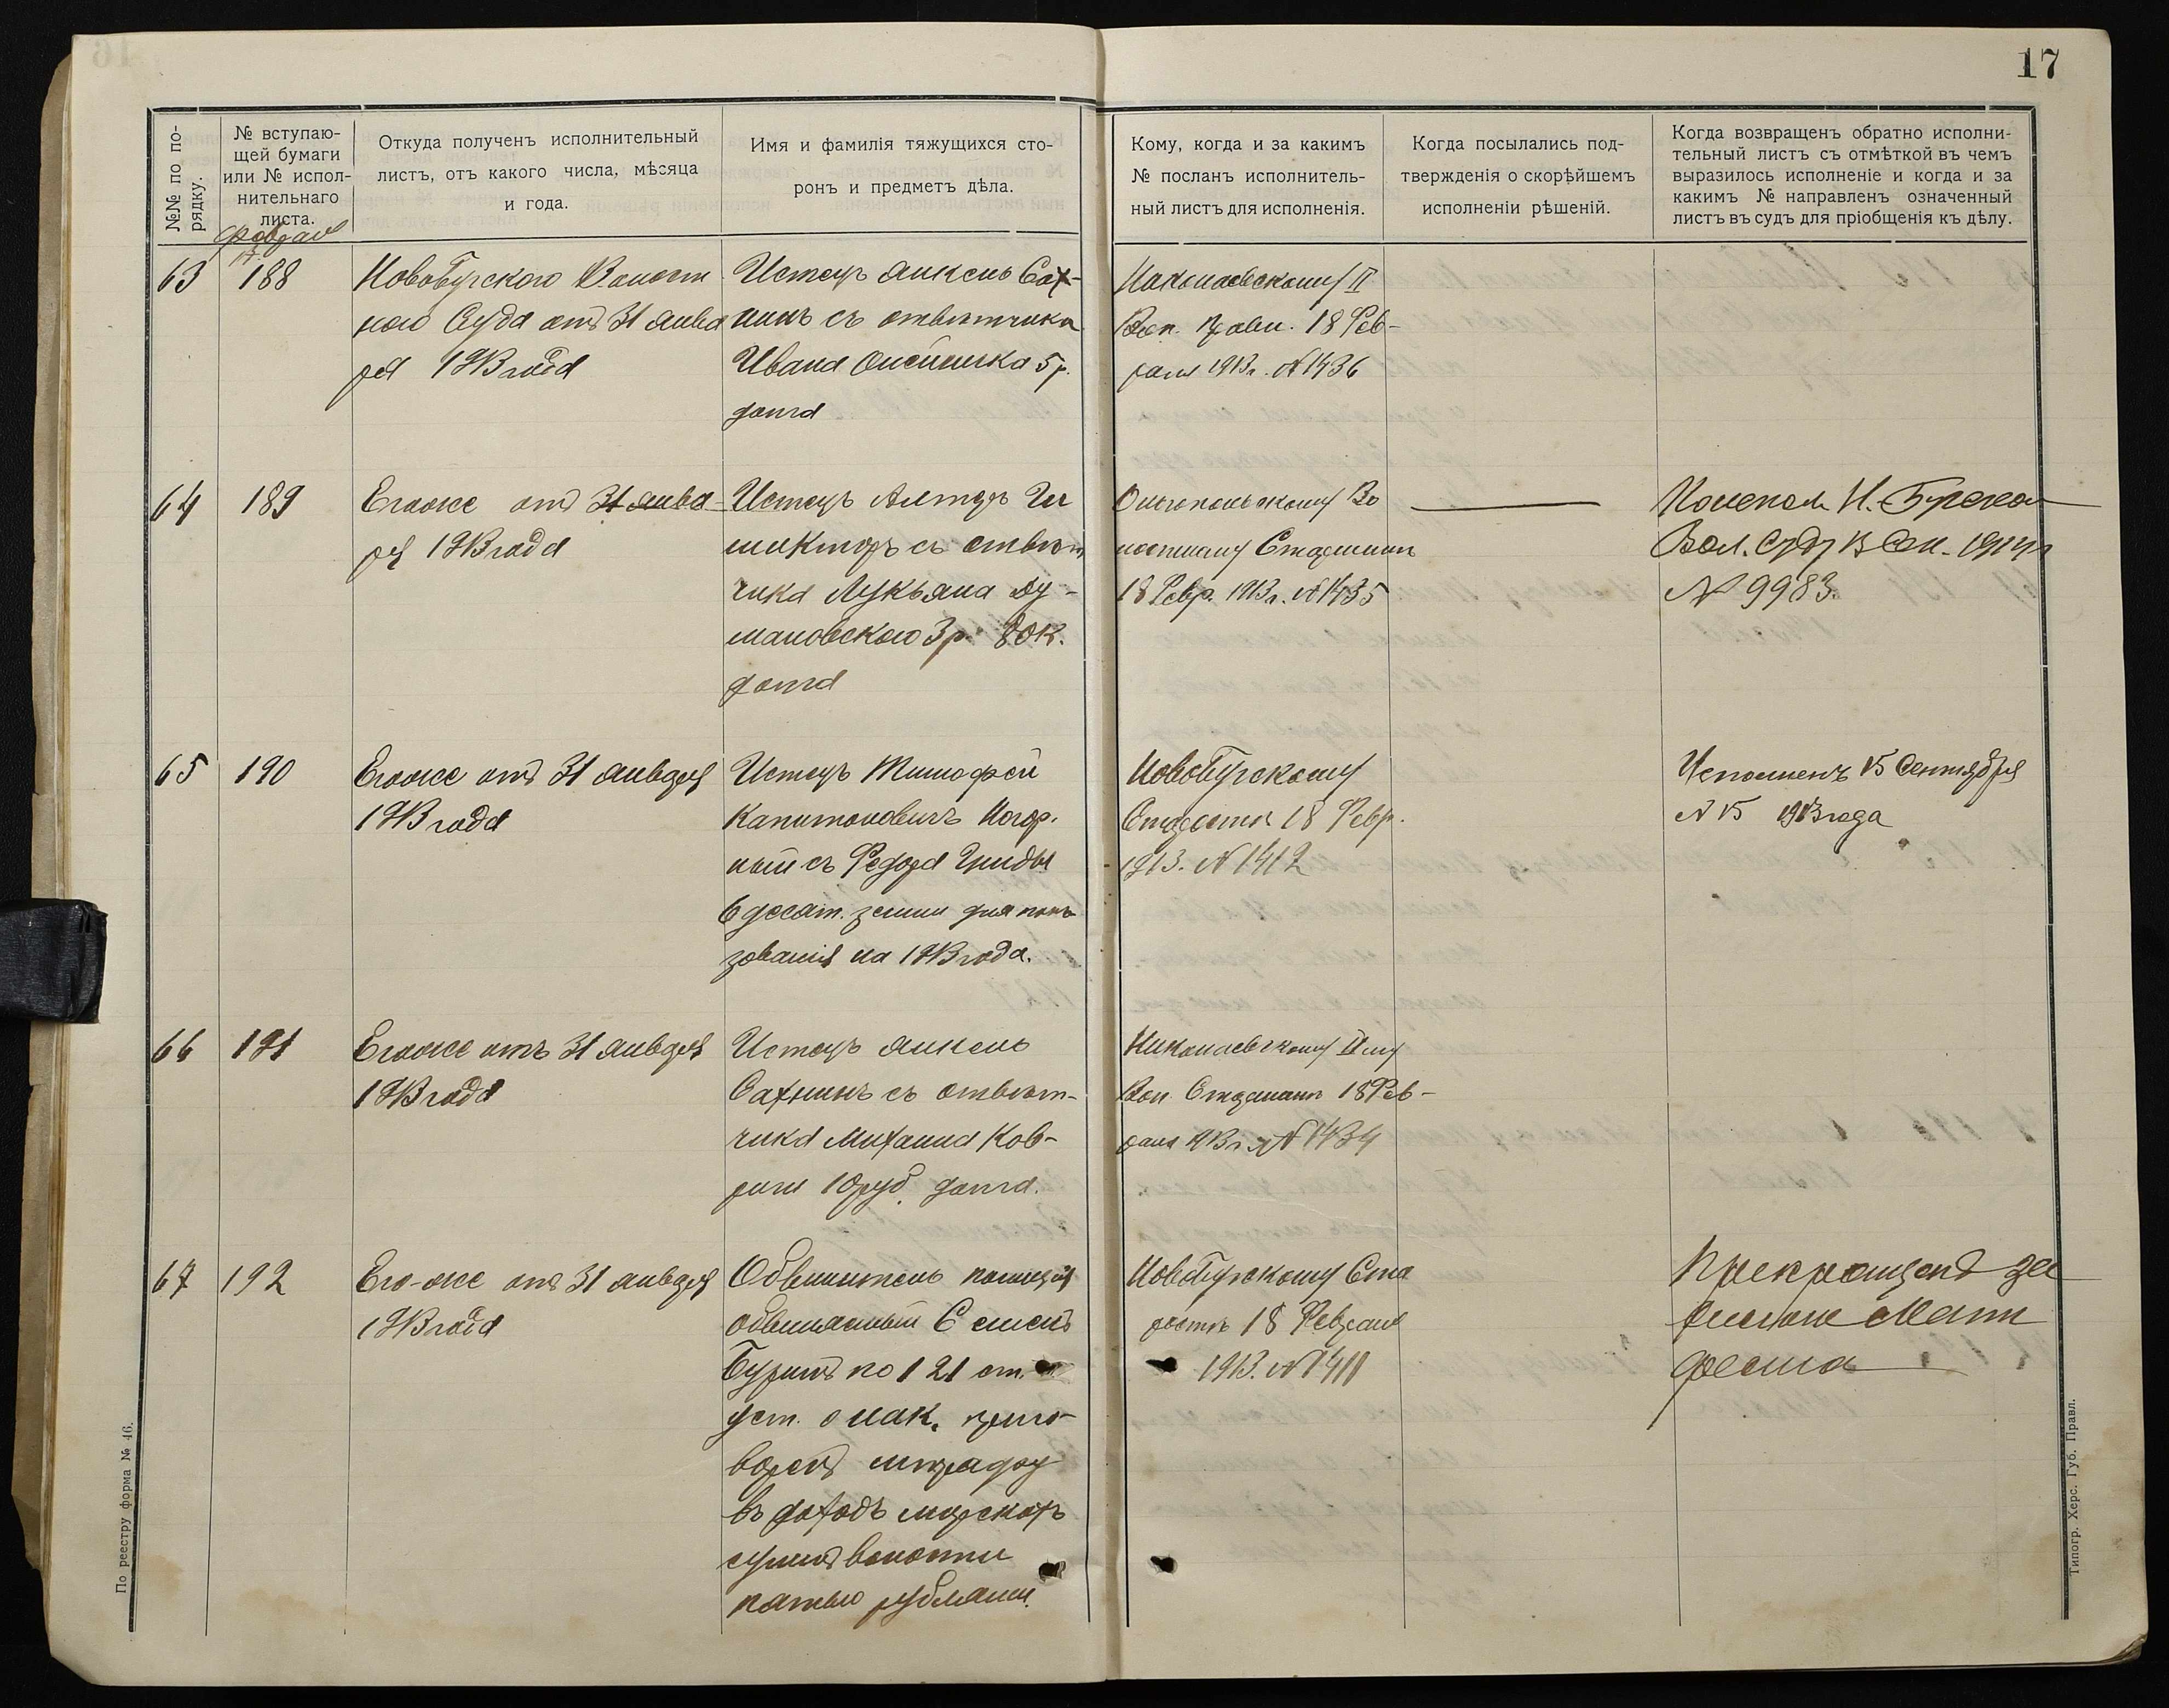 17
№№ по по-
рядку.
№ вступаю-
щей бумаги
или № испол-
нительнаго
листа.
Откуда полученъ исполнительный
листъ, отъ какого числа, мѣсяца
и года.
Имя и фамилія тяжущихся сто-
ронъ и предметъ дѣла.
Кому, когда и за какимъ
№ посланъ исполнитель-
ный листъ для исполненія.
Когда посылались под-
твержденія о скорѣйшемъ
исполненіи рѣшеній.
Когда возвращенъ обратно исполни-
тельный листъ съ отмѣткой въ чемъ
выразилось исполненіе и когда и за
какимъ № направленъ означенный
листъ въ судъ для пріобщенія къ дѣлу.
Февраля
17
63
188
Новобугского Волост
ного Суда отъ 31 янва
ря 1913 года
Истецъ Янкель Сах-
нинъ съ отвѣтчика
Ивана Олейника 5 р.
долга
Николаевскому II
Вол. Правл. 18 Фев-
раля 1913 г. № 1436
64
189
Егоже отъ 31 янва-
ря 1913 года
Истецъ Алтеръ
съ отвѣт
чика Лукьяна Ду-
мановского 3 р. 80 к.
долга
Ольгопольскому Во
лостному Старшинѣ
18 Февр. 1913 г. № 1435
Н. Бугском
Вол. Суду 13 Сен. 1914 г
№ 9983.
65
190
Егоже отъ 31 января
1913 года
Истецъ Тимофей
Капитоновичъ Нагор.
ный съ Федора Гниды
6 десят. земли для поль
зованія на 1913 года.
Новобугскому
Старостѣ 18 Февр.
1913. № 1412
Исполненъ 15 Сентября
№ 15 1913 года
66
191
Егоже отъ 31 января
1913 года
Истецъ Янкель
Сахнинъ съ отвѣт-
чика Михаила Ков-
риги 10 руб. долга.
Николаевскому II му
Вол. Старшинѣ 18 Фев-
раля 1913 г. № 1434
67
192
Его-же отъ 31 января
1913 года
Обвинитель полиція
обвиняемый Семенъ
Буринъ по 121 ст.
уст. о нак. приго-
воренъ штрафу
въ доходъ мирскихъ
суммъ волости
пятью рублями.
Новобугскому Ста
ростѣ 18 Февраля
1913. № 1411
Прекращено за
силою Мани
феста
По реестру форма № 46.
Типогр. Херс. Губ. Правл.